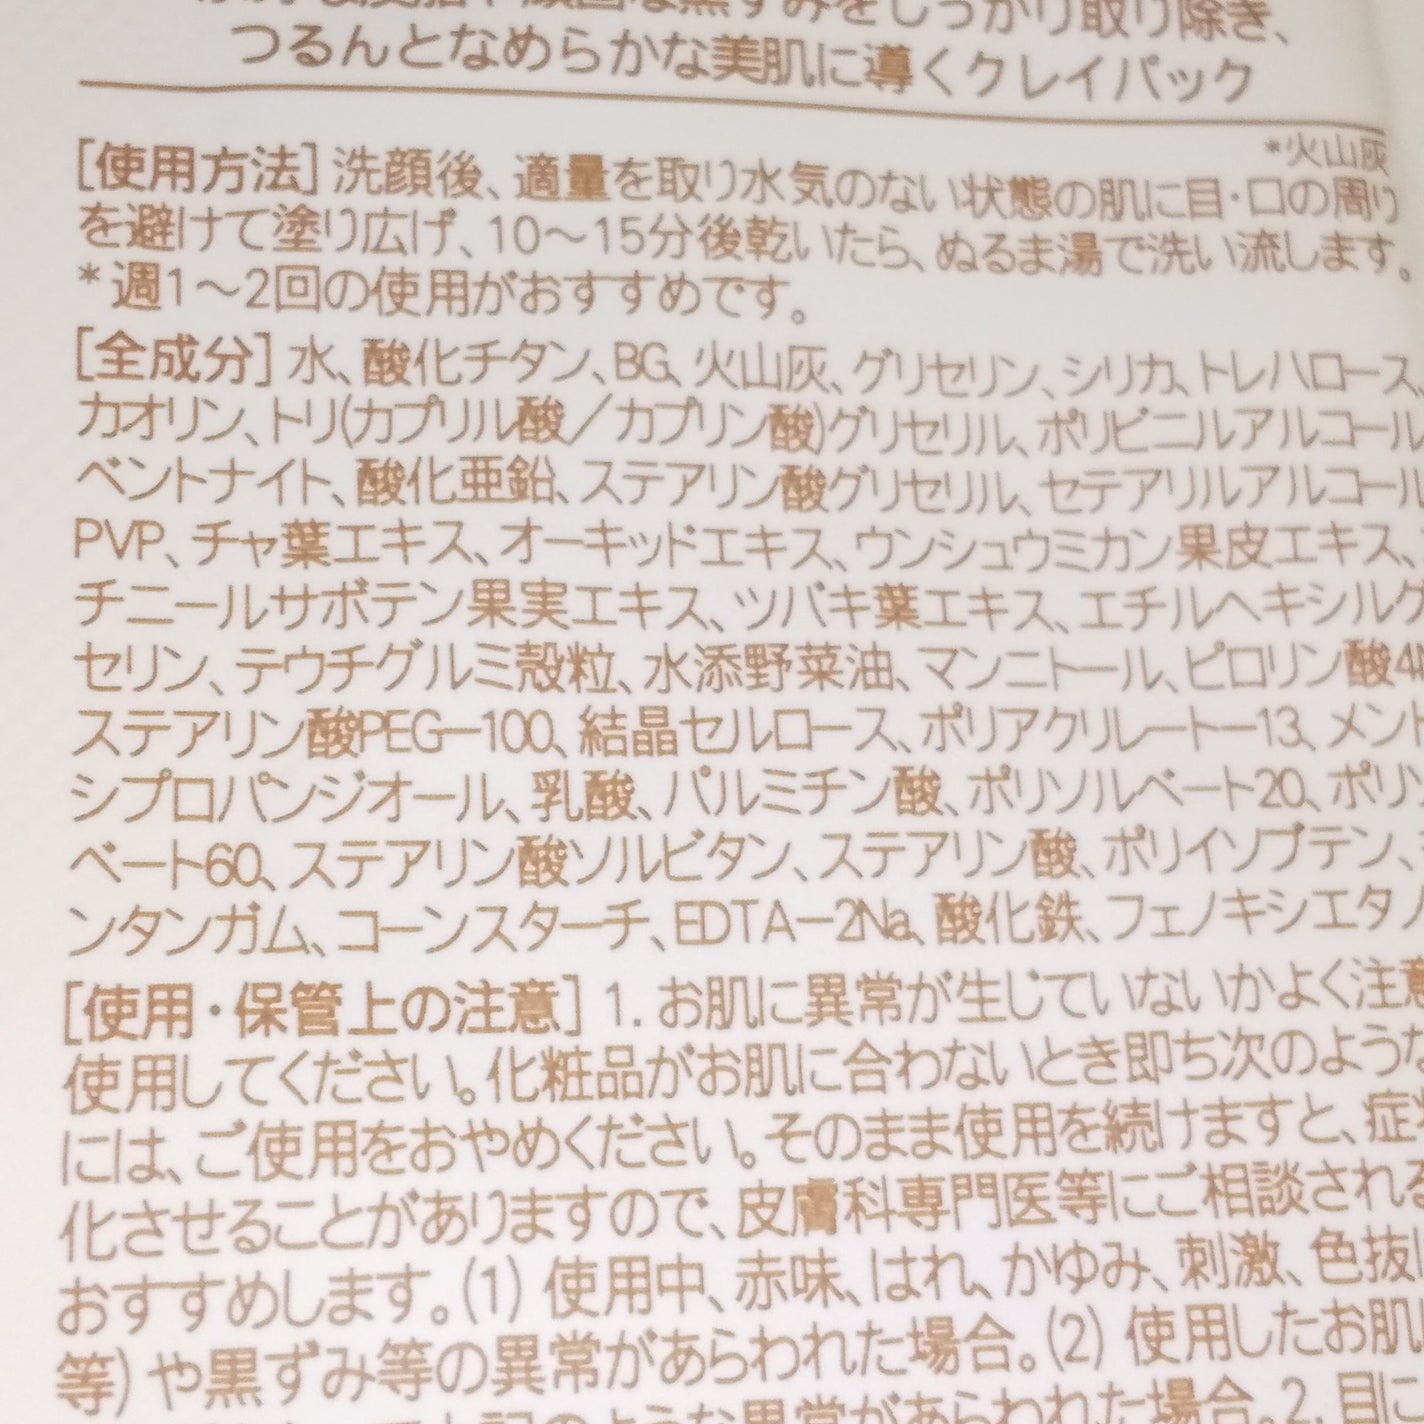 な黒ずみをしっかり取り除き、
つるんとなめらかな美肌に導くクレイパック
*火山灰
[使用方法] 洗顔後、適量を取り水気のない状態の肌に目・口の周り
を避けて塗り広げ、10〜15分後乾いたら、ぬるま湯で洗い流します。
*週1〜2回の使用がおすすめです。
[全成分] 水、酸化チタン、BG、火山灰、グリセリン、シリカ、トレハロース、
カオリン、トリ(カプリル酸／カプリン酸)グリセリル、ポリビニルアルコール
ベントナイト、酸化亜鉛、ステアリン酸グリセリル、セテアリルアルコール
PVP、チャ葉エキス、オーキッドエキス、ウンシュウミカン果皮エキス、
チニールサボテン果実エキス、ツバキ葉エキス、エチルヘキシルグ
セリン、テウチグルミ殻粒、水添野菜油、マンニトール、ピロリン酸4N
ステアリン酸PEG－100、結晶セルロース、ポリアクリレート－13、メント
シプロパンジオール、乳酸、パルミチン酸、ポリソルベート20、ポリソ
ベート60、ステアリン酸ソルビタン、ステアリン酸、ポリイソブテン、
ンタンガム、コーンスターチ、EDTA－2Na、酸化鉄、フェノキシエタノ
[使用・保管上の注意] 1. お肌に異常が生じていないかよく注意
使用してください。化粧品がお肌に合わないとき即ち次のような
には、ご使用をおやめください。そのまま使用を続けますと、症
化させることがありますので、皮膚科専門医等にご相談される
おすすめします。(1) 使用中、赤味、はれ、かゆみ、刺激、色抜け
等) や黒ずみ等の異常があらわれた場合。(2) 使用したお肌
のような異常があらわれた場合。2. 目に